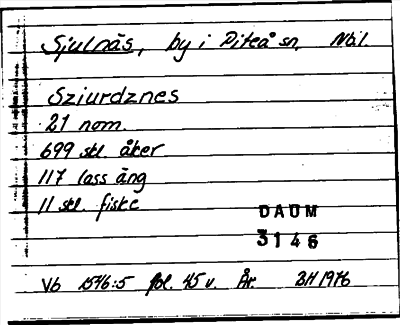 Sjulnäs, by i Piteå sn, Nbl.
Sziurdznes
21 nom.
699 skl. åker
117 lass äng
11 skl. fiske
DAUM
3146
Vb 1546:5 fol. 45 v. Är. BH 1976